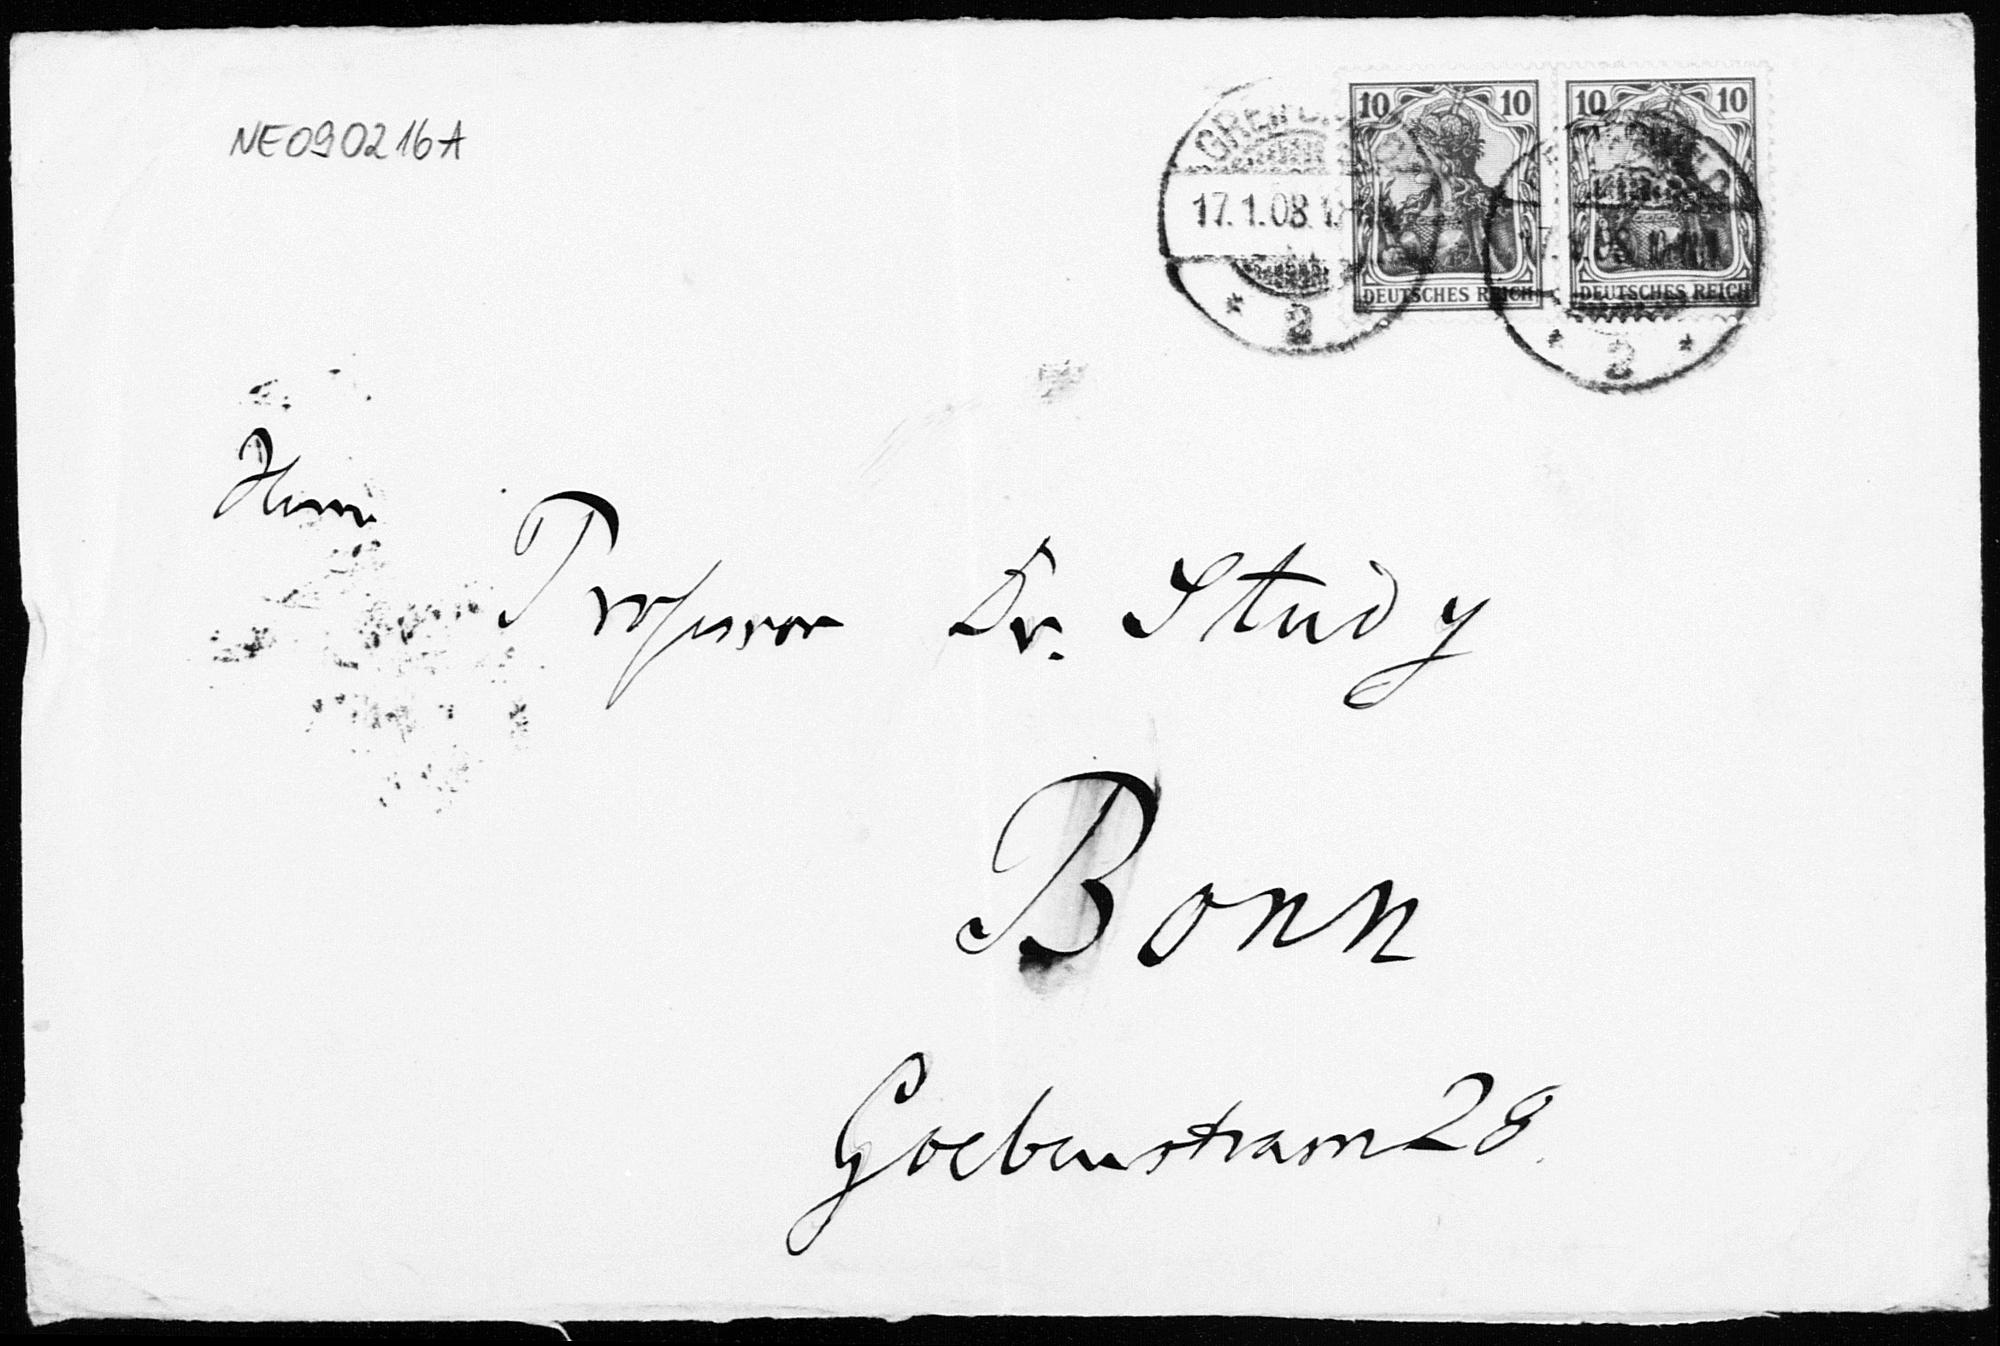 NE090216A
10 10 10 10
17.1.08.
DEUTSCHES REICH DEUTSCHES REICH
* 2 * 2 *
Herrn
Professor Dr. Study
Bonn
Goebenstrasse 28.